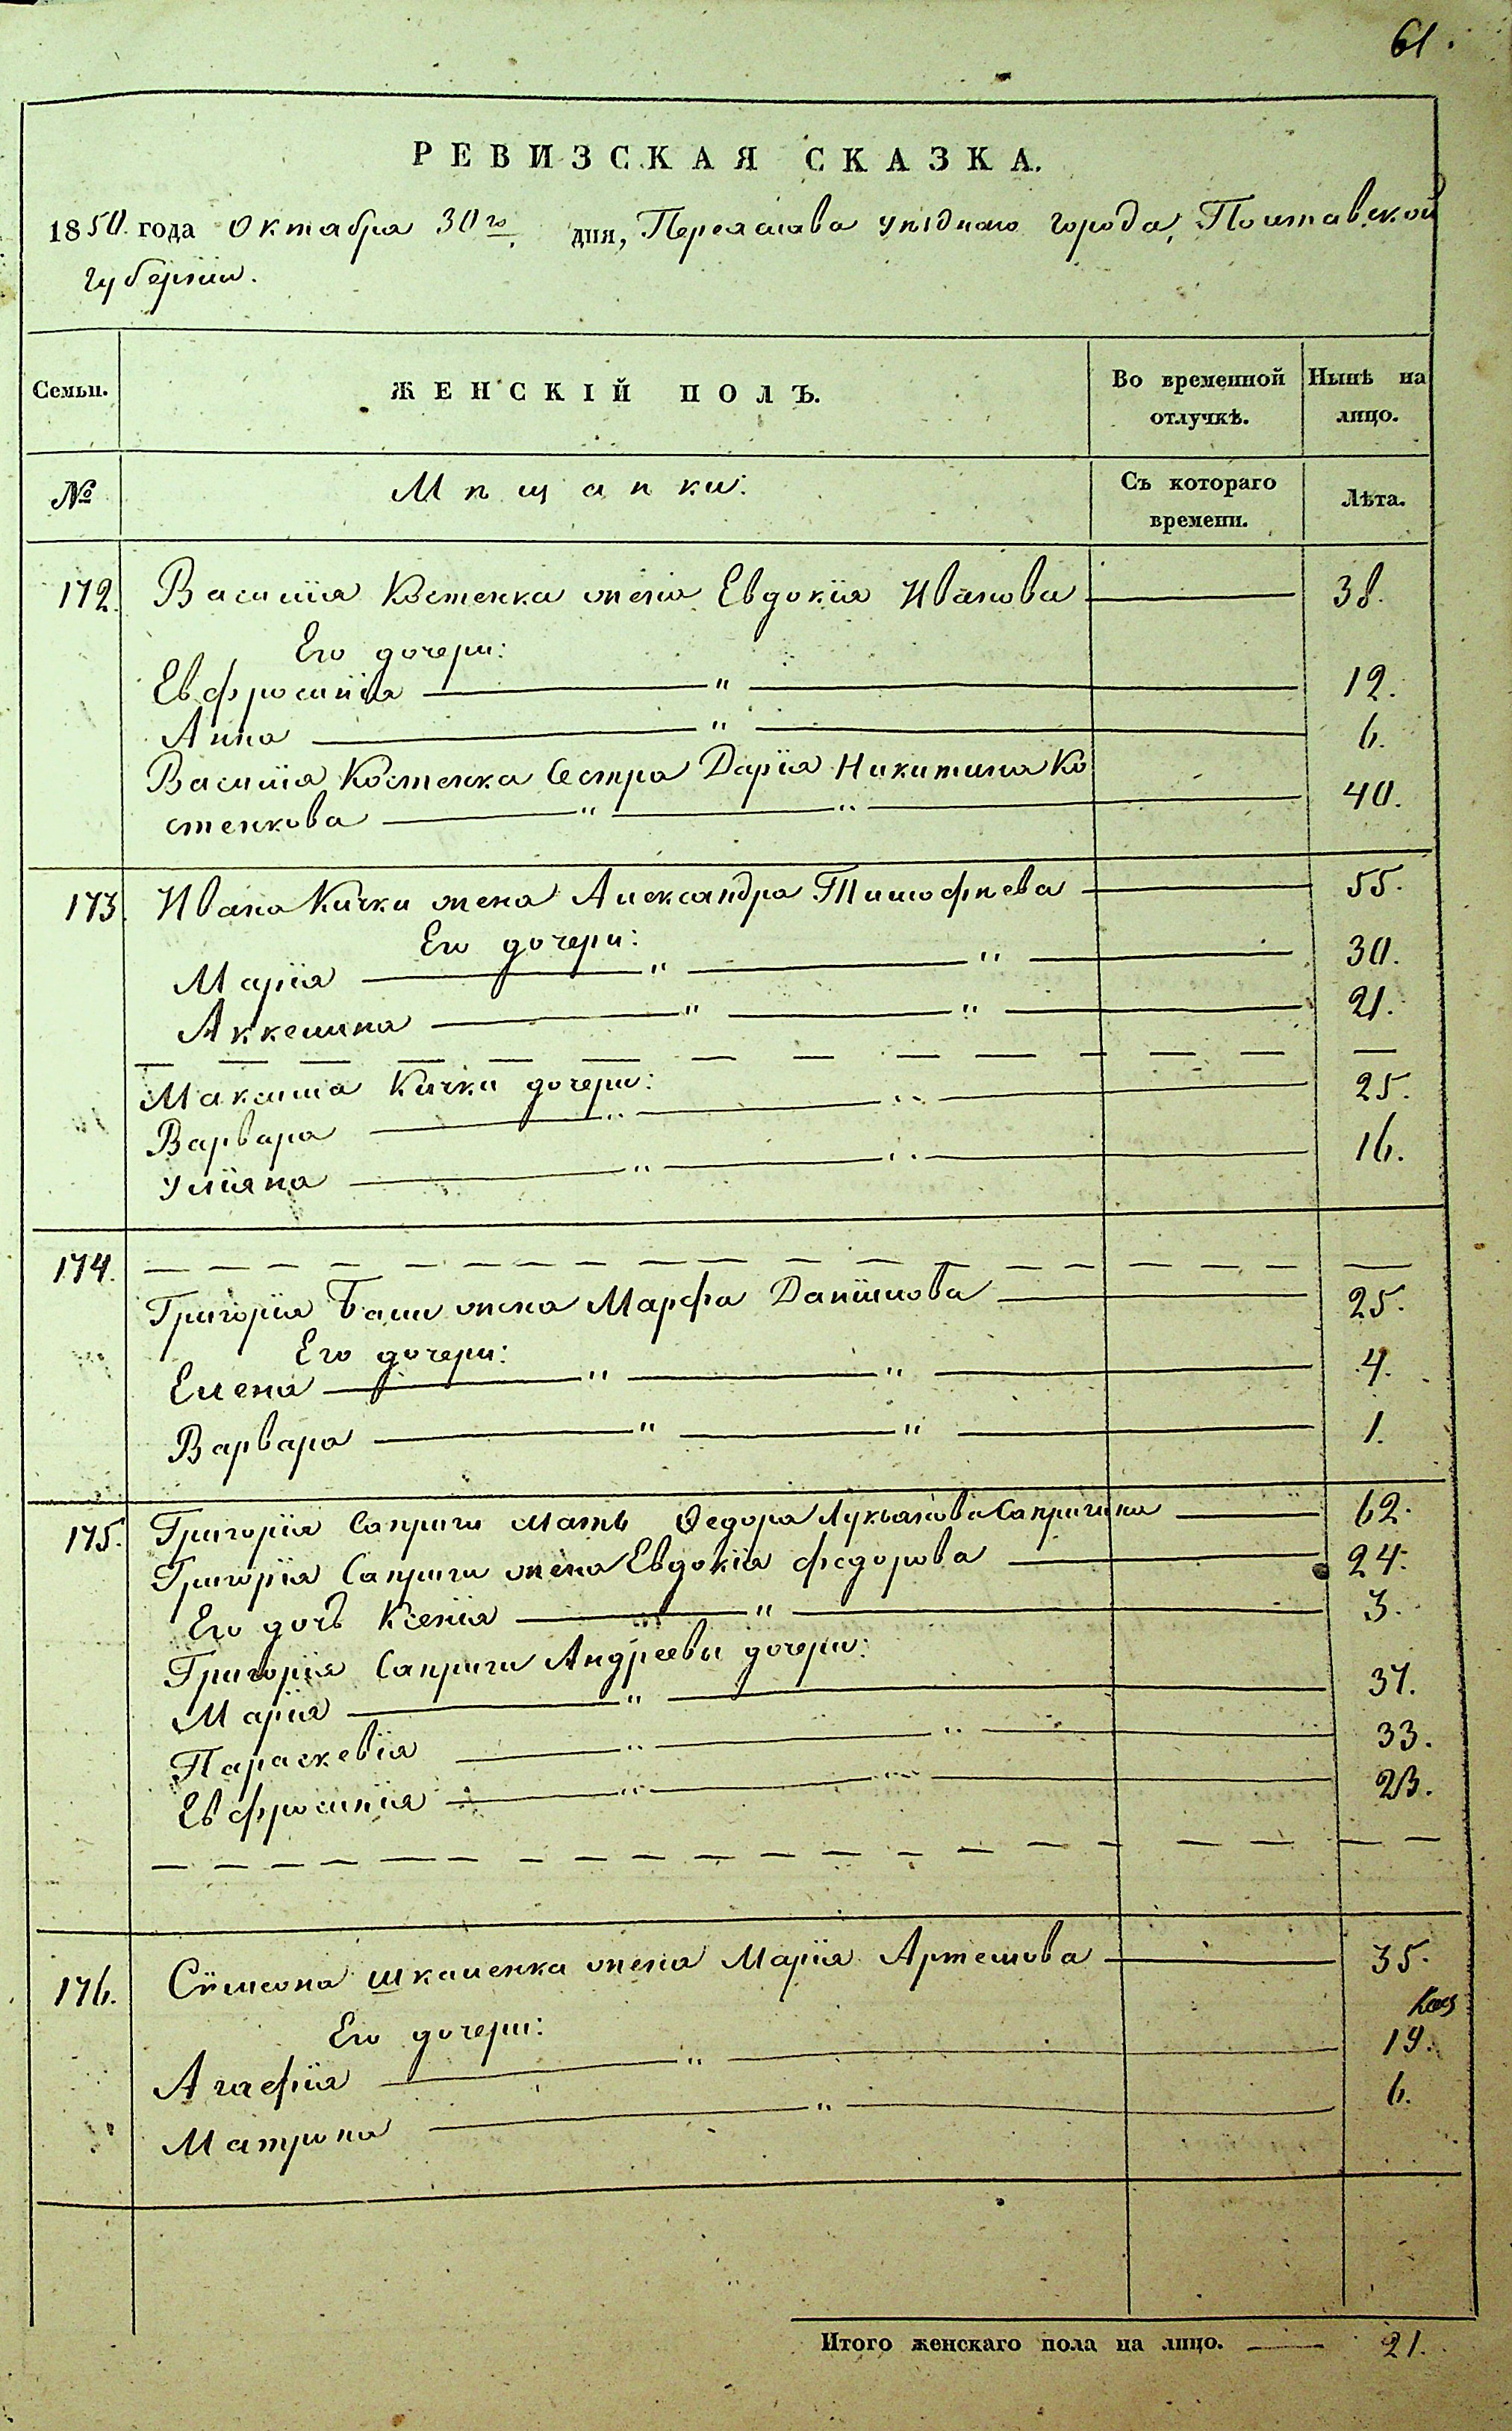 61.
РЕВИЗСКАЯ СКАЗКА.
1850 года Октабра 30го дня, Переяслава уѣзднаго города, Полтавской
губерніи.
Семьи.
ЖЕНСКІЙ ПОЛЪ.
Во временной отлучкѣ.
Нынѣ на лицо.
№
Мѣщанки:
Съ котораго времени.
Лѣта.
172. Василія Костенка жена Евдокія Иванова 38.
Его дочери:
Евфросинія " 12.
Анна " 6.
Василія Костенка Сестра Дарія Никитина Ко
стенкова " " 40.
173. Ивана Кички жена Александра Тимофѣева 55.
Его дочери:
Марія " " 30.
Аккелина " " 21.
Максима Кички дочери:
Варвара " " 25.
Уліяна " " 16.
174.
Григорія жена Марфа Даніилова 25.
Его дочери:
Елена " " 4.
Варвара " " 1.
175. Григорія Саприги мать Ѳедора Лукьянова Сапригина 62.
Григорія Саприги жена Евдокія Федорова 24.
Его дочь Ксенія " 3.
Григорія Саприги Андреевы дочери:
Марія " 37.
Параскевія " " 33.
Евфросинія " " 23.
176. Сѵмеона Шкаленка жена Марія Артемова 35.
Его дочери:
Агафія " 19.
Матрона " 6.
Итого женскаго пола на лицо. 21.